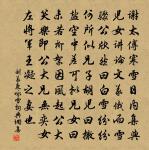 謝太傅寒雪日內集與
兒女講論文義俄而雪
驟公欣然曰白雪紛紛
何所似兄子胡兒曰撒
鹽空中差可擬兄女曰
未若柳絮因風起公大
笑樂即公大兄無奕女
左將軍王凝之妻也
劉義慶詠雪